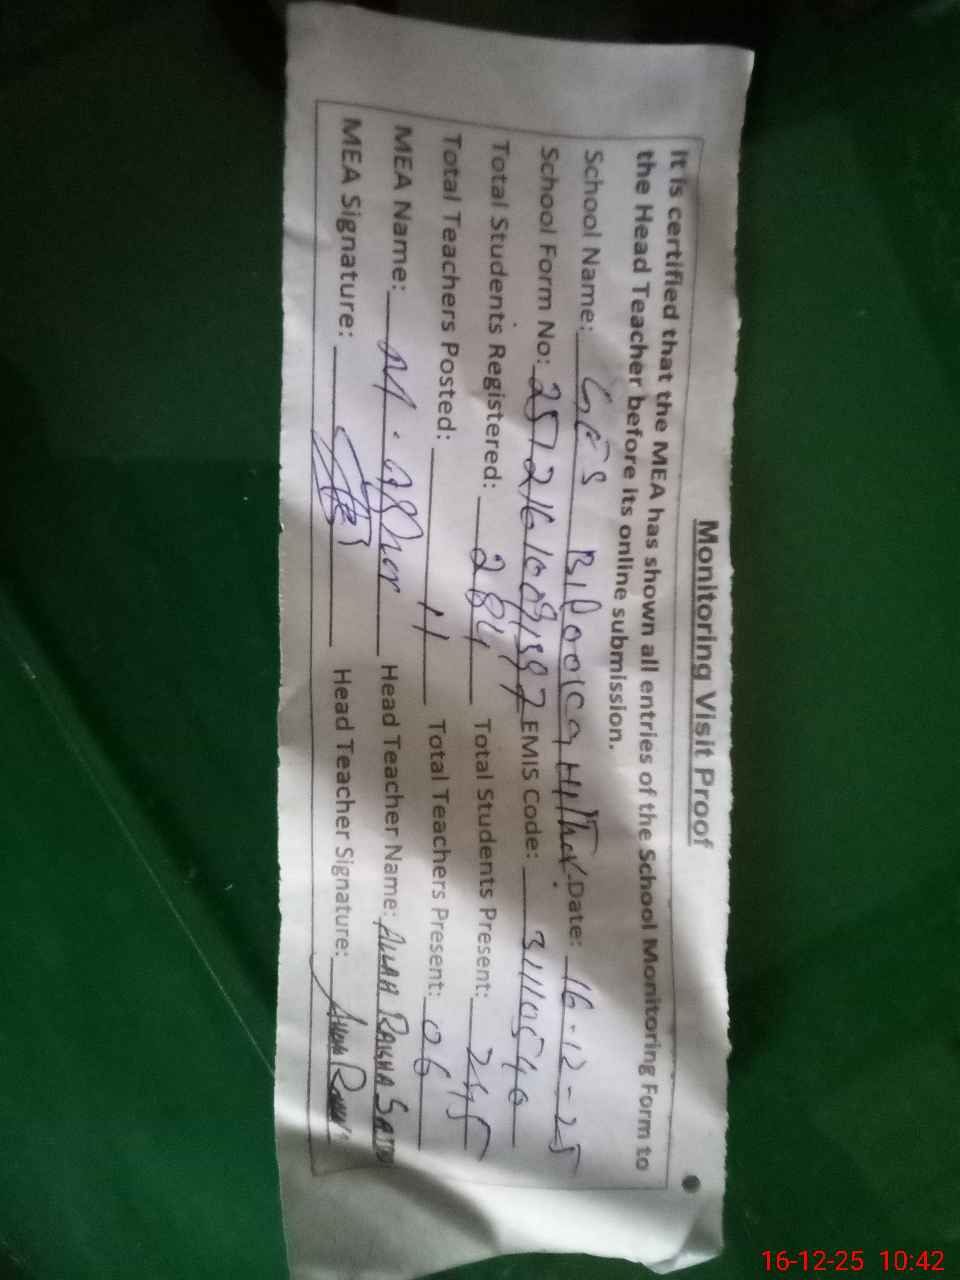 Monitoring Visit Proof
It is certified that the MEA has shown all entries of the School Monitoring Form to
the Head Teacher before its online submission.
School Name: GES Date: 16-12-25
School Form No: EMIS Code: 31110540
Total Students Registered: 284 Total Students Present: 245
Total Teachers Posted: 11 Total Teachers Present: 06
MEA Name: M. Head Teacher Name: ALLAH RAKHA
MEA Signature: Head Teacher Signature:
16-12-25 10:42